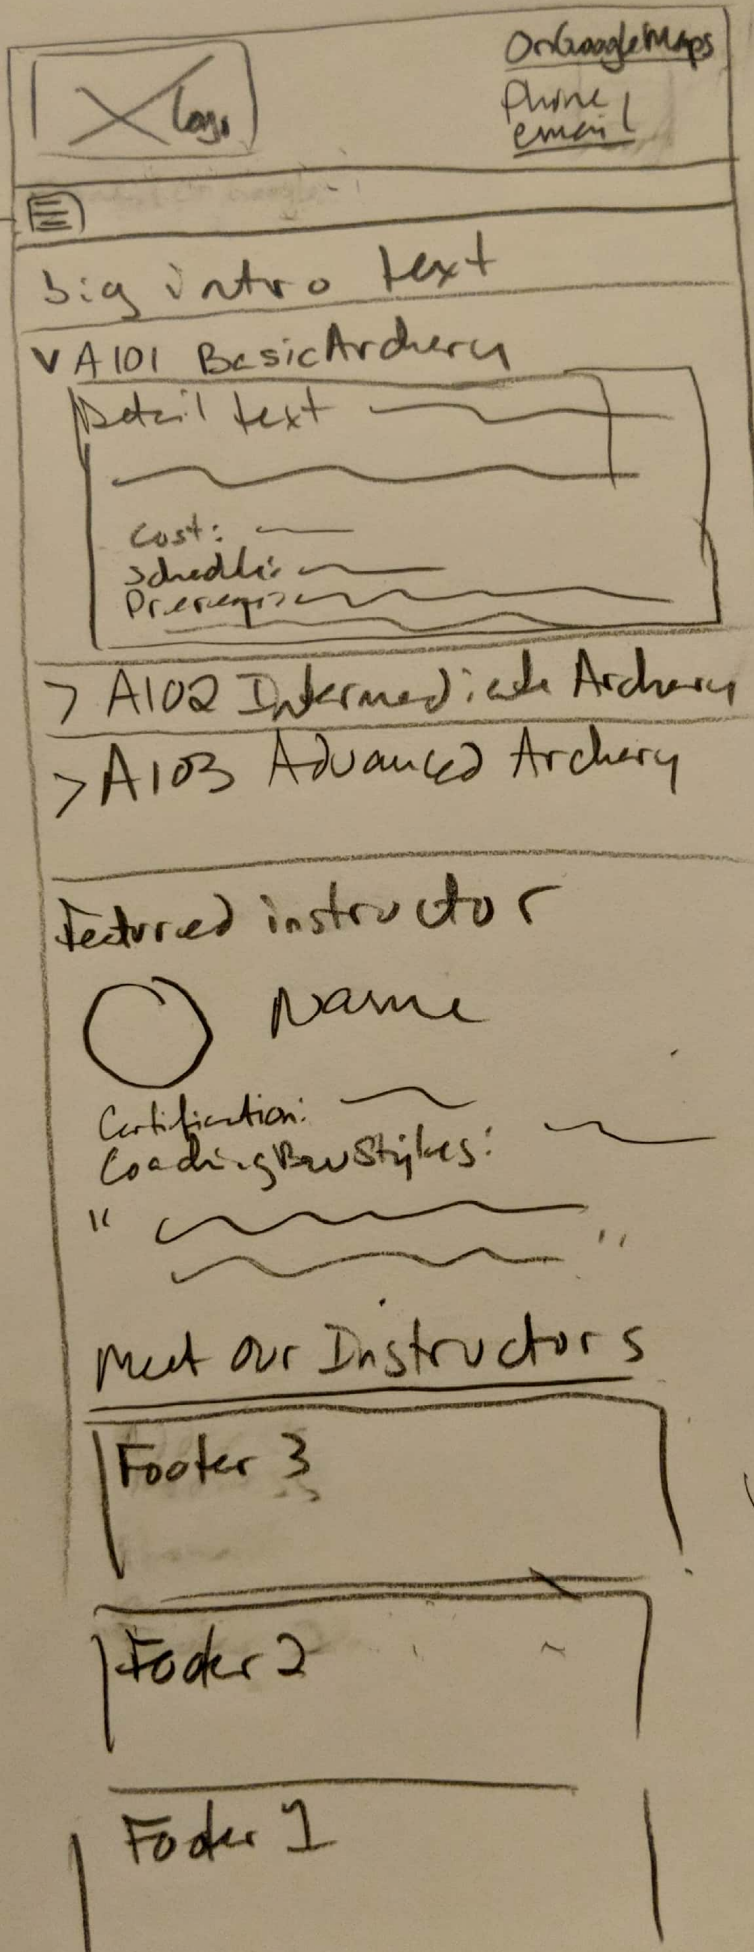 Logo
OnGoogleMaps
Phone
email
big intro text
v A101 Basic Archery
Detail text
Cost:
Schedule:
Prereqs:
> A102 Intermediate Archery
> A103 Advanced Archery
Featured instructor
Name
Certification:
Coaching Bow Styles:
" "
Meet Our Instructors
Footer 3
Footer 2
Footer 1